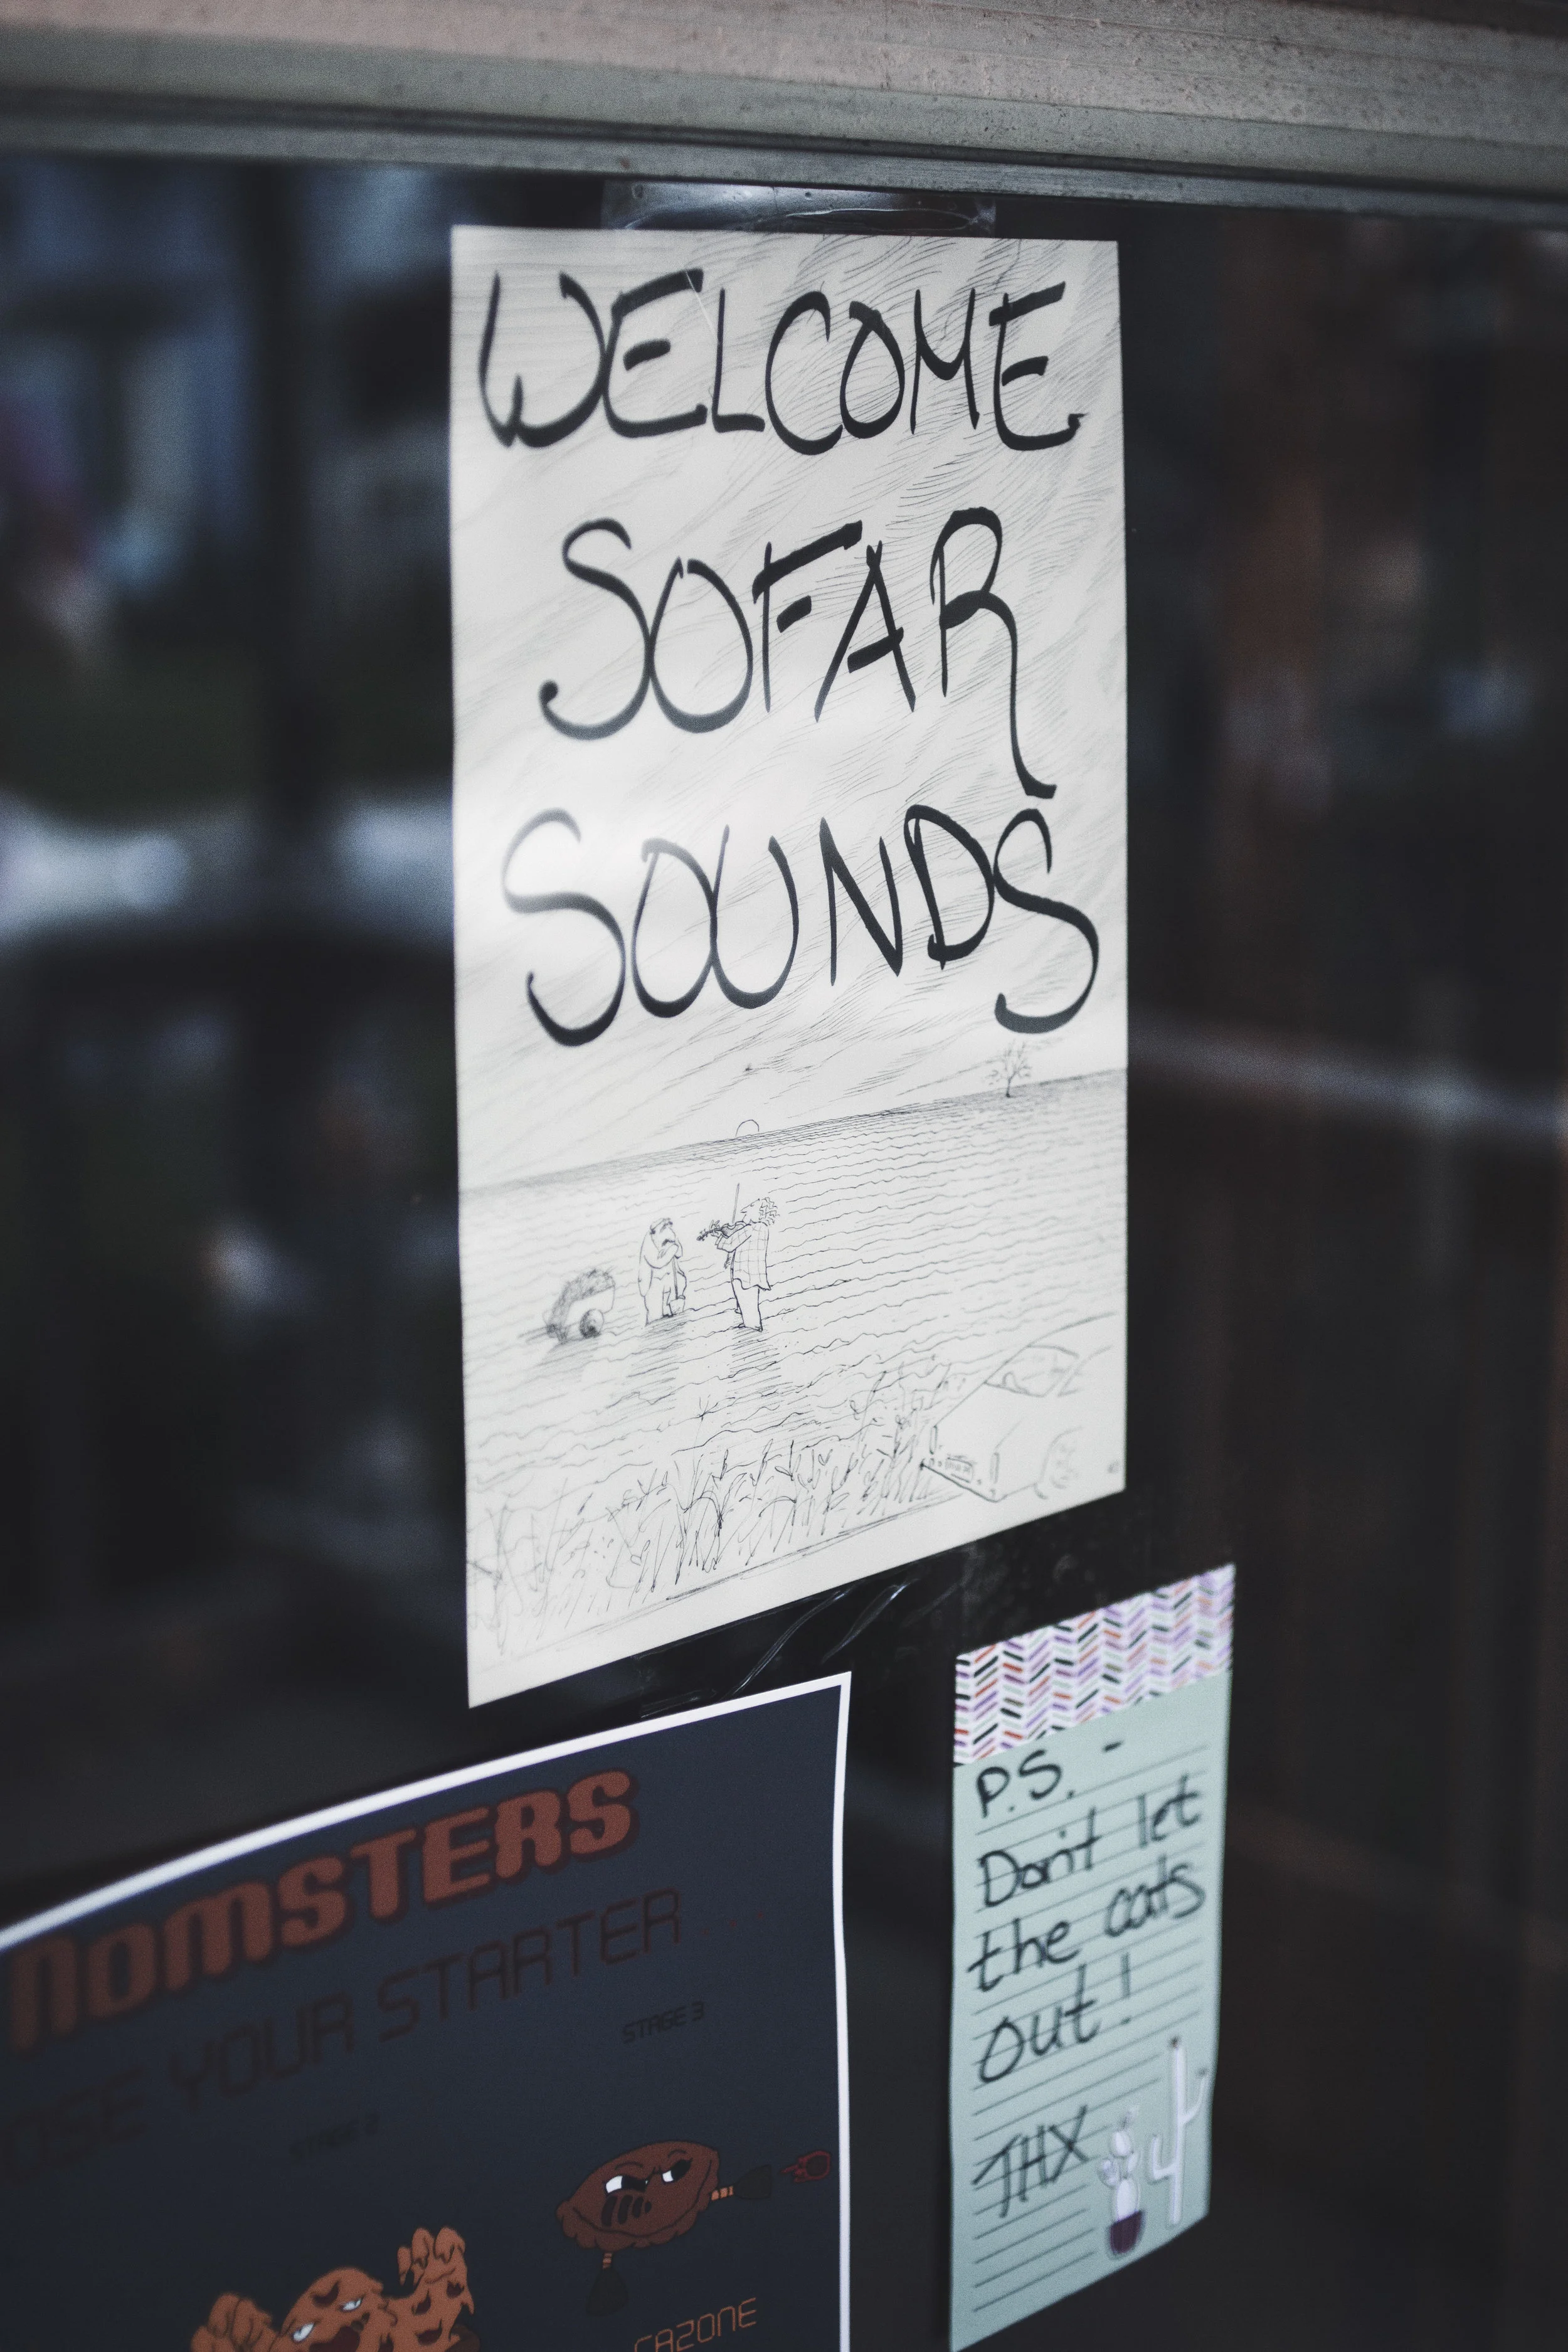 WELCOME
SOFAR
SOUNDS
P.S. -
Don't let
the cats
out!
THX
NOMSTERS
OSE YOUR STARTER...
STAGE 3
STAGE 2
CAZONE